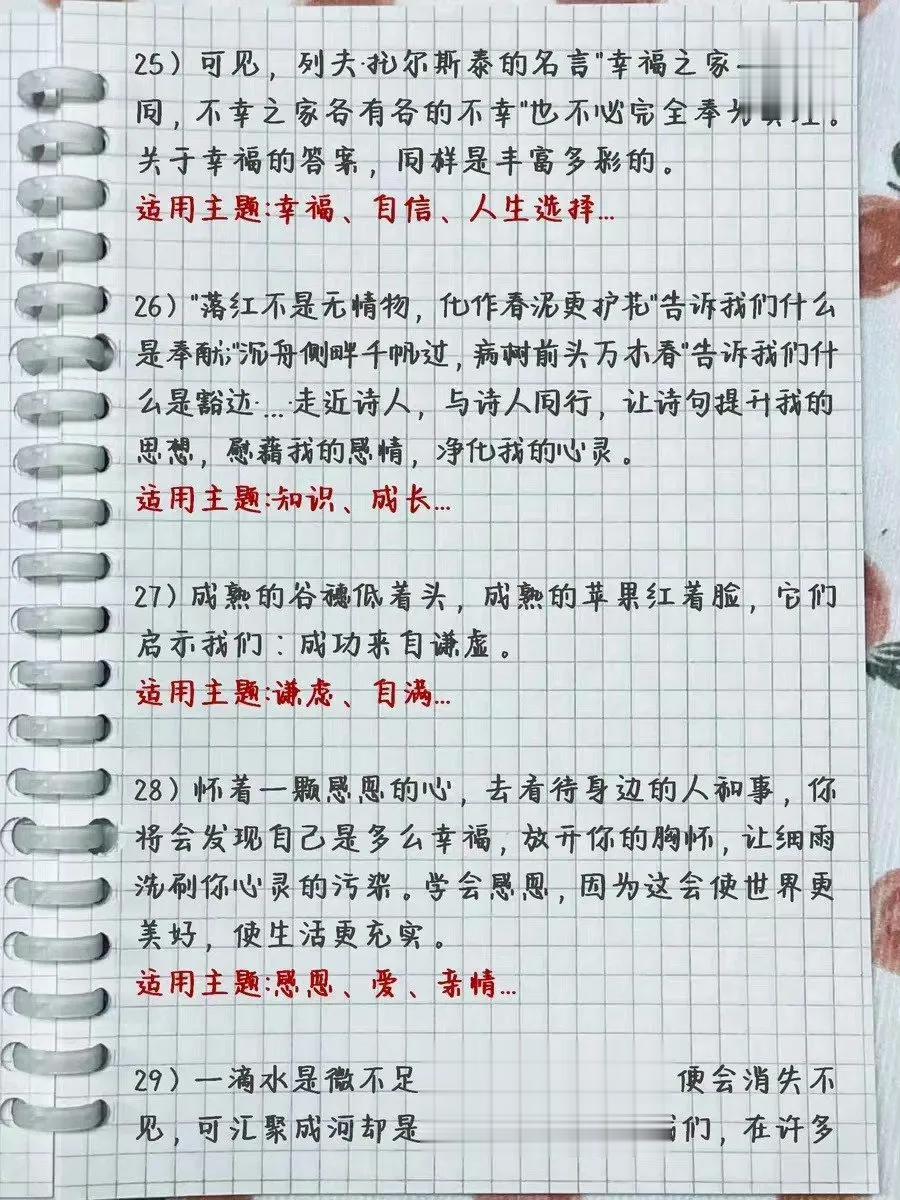 25）可见，列夫·托尔斯泰的名言"幸福之家
同，不幸之家各有各的不幸"也不必完全奉为
关于幸福的答案，同样是丰富多彩的。
适用主题:幸福、自信、人生选择...
26）"落红不是无情物，化作春泥更护花"告诉我们什么
是奉献;"沉舟侧畔千帆过，病树前头万木春"告诉我们什
么是豁达……走近诗人，与诗人同行，让诗句提升我的
思想，慰藉我的感情，净化我的心灵。
适用主题:知识、成长...
27）成熟的谷穗低着头，成熟的苹果红着脸，它们
启示我们：成功来自谦虚。
适用主题:谦虑、自满...
28）怀着一颗感恩的心，去看待身边的人和事，你
将会发现自己是多么幸福，放开你的胸怀，让细雨
洗刷你心灵的污染。学会感恩，因为这会使世界更
美好，使生活更充实。
适用主题:感恩、爱、亲情...
29）一滴水是微不足
便会消失不
见，可汇聚成河却是
们，在许多